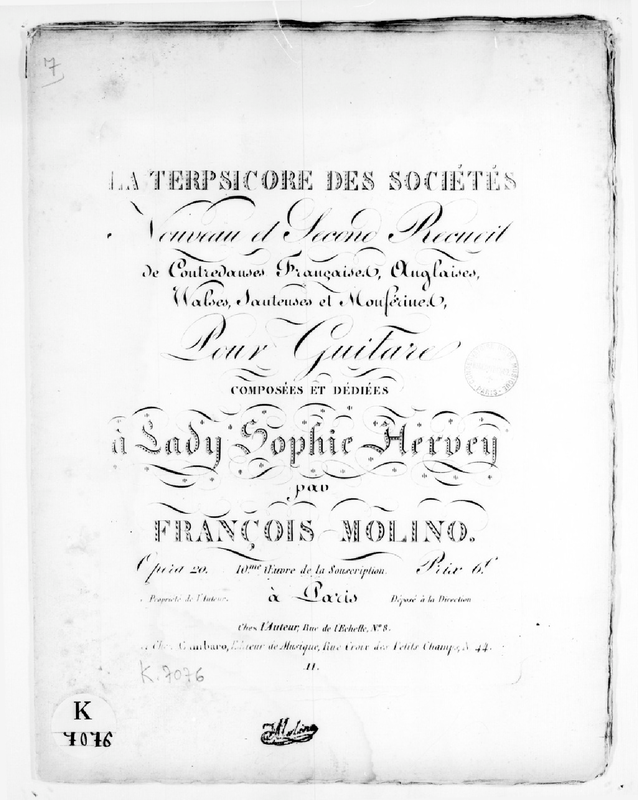 7
LA TERPSICORE DES SOCIÉTÉS
Nouveau et Second Recueil
de Contredanses Françaises, Anglaises,
Walses, Sauteuses et Monférines,
Pour Guitare
COMPOSÉES ET DÉDIÉES
à Lady Sophie Hervey
par
FRANÇOIS MOLINO.
Opera 20. 10.me Œuvre de la Souscription. Prix 6.f
Propriété de l'Auteur. à Paris Déposé à la Direction
Chez l'Auteur, Rue de l'Echelle, N.º 8.
Chez Gambaro, Editeur de Musique, Rue Croix des Petits Champs, N. 44.
11.
K. 7076
K
7076
Molino